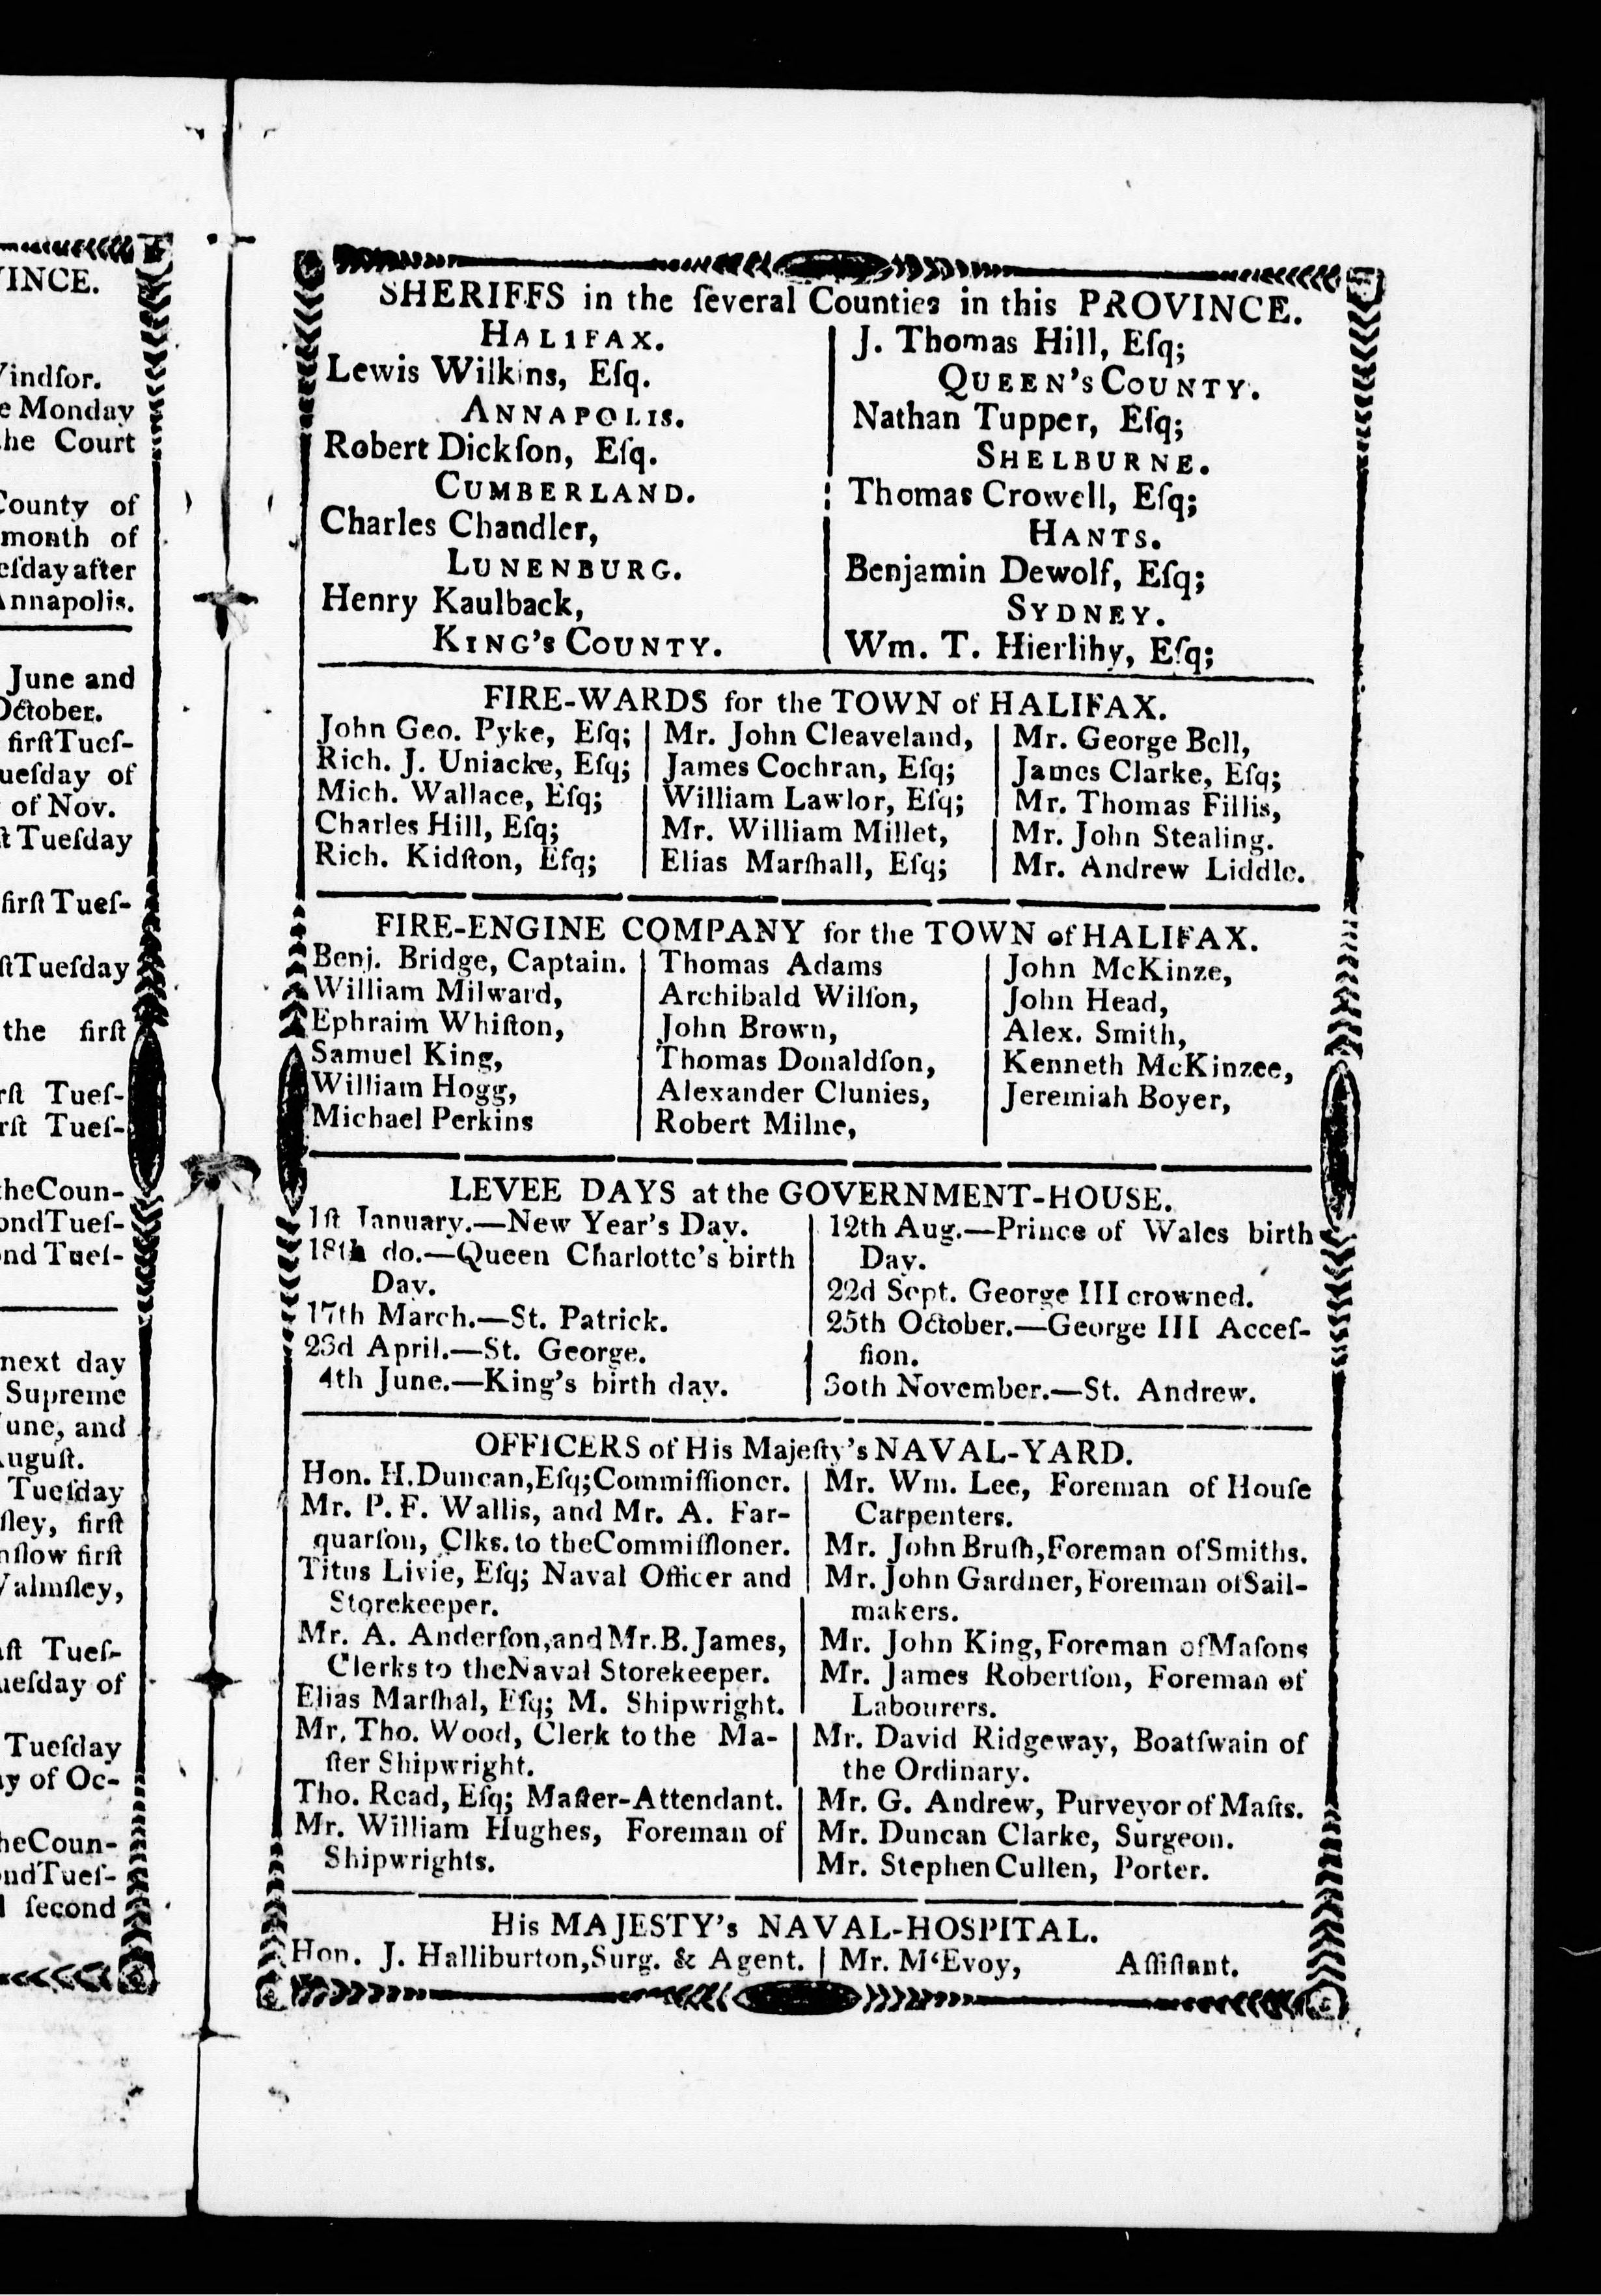 VINCE.
Vindſor.
e Monday
the Court
County of
month of
eſday after
Annapolis.
June and
October.
firſt Tueſ-
ueſday of
of Nov.
ſt Tueſday
firſt Tueſ-
ſt Tueſday
the firſt
rſt Tueſ-
rſt Tueſ-
the Coun-
ond Tueſ-
ond Tueſ-
next day
Supreme
June, and
Auguſt.
Tueſday
ſley, firſt
nſlow firſt
Valmſley,
aſt Tueſ-
ueſday of
Tueſday
ay of Oc-
heCoun-
ondTueſ-
ſecond
SHERIFFS in the ſeveral Counties in this PROVINCE.
HALIFAX.
Lewis Wilkins, Eſq.
ANNAPOLIS.
Robert Dickſon, Eſq.
CUMBERLAND.
Charles Chandler,
LUNENBURG.
Henry Kaulback,
KING's COUNTY.
J. Thomas Hill, Eſq;
QUEEN's COUNTY.
Nathan Tupper, Eſq;
SHELBURNE.
Thomas Crowell, Eſq;
HANTS.
Benjamin Dewolf, Eſq;
SYDNEY.
Wm. T. Hierlihy, Eſq;
FIRE-WARDS for the TOWN of HALIFAX.
John Geo. Pyke, Eſq;
Rich. J. Uniacke, Eſq;
Mich. Wallace, Eſq;
Charles Hill, Eſq;
Rich. Kidſton, Eſq;
Mr. John Cleaveland,
James Cochran, Eſq;
William Lawlor, Eſq;
Mr. William Millet,
Elias Marſhall, Eſq;
Mr. George Bell,
James Clarke, Eſq;
Mr. Thomas Fillis,
Mr. John Stealing.
Mr. Andrew Liddle.
FIRE-ENGINE COMPANY for the TOWN of HALIFAX.
Benj. Bridge, Captain.
William Milward,
Ephraim Whiſton,
Samuel King,
William Hogg,
Michael Perkins
Thomas Adams
Archibald Wilſon,
John Brown,
Thomas Donaldſon,
Alexander Clunies,
Robert Milne,
John McKinze,
John Head,
Alex. Smith,
Kenneth McKinzee,
Jeremiah Boyer,
LEVEE DAYS at the GOVERNMENT-HOUSE.
1ſt January.—New Year's Day.
18th do.—Queen Charlotte's birth
Day.
17th March.—St. Patrick.
23d April.—St. George.
4th June.—King's birth day.
12th Aug.—Prince of Wales birth
Day.
22d Sept. George III crowned.
25th October.—George III Acceſ-
ſion.
30th November.—St. Andrew.
OFFICERS of His Majeſty's NAVAL-YARD.
Hon. H. Duncan, Eſq; Commiſſioner.
Mr. P. F. Wallis, and Mr. A. Far-
quarſon, Clks. to the Commiſſioner.
Titus Livie, Eſq; Naval Officer and
Storekeeper.
Mr. A. Anderſon, and Mr. B. James,
Clerks to the Naval Storekeeper.
Elias Marſhal, Eſq; M. Shipwright.
Mr. Tho. Wood, Clerk to the Ma-
ſter Shipwright.
Tho. Read, Eſq; Maſter-Attendant.
Mr. William Hughes, Foreman of
Shipwrights.
Mr. Wm. Lee, Foreman of Houſe
Carpenters.
Mr. John Bruſh, Foreman of Smiths.
Mr. John Gardner, Foreman of Sail-
makers.
Mr. John King, Foreman of Maſons
Mr. James Robertſon, Foreman of
Labourers.
Mr. David Ridgeway, Boatſwain of
the Ordinary.
Mr. G. Andrew, Purveyor of Maſts.
Mr. Duncan Clarke, Surgeon.
Mr. Stephen Cullen, Porter.
His MAJESTY's NAVAL-HOSPITAL.
Hon. J. Halliburton, Surg. & Agent.
Mr. M‘Evoy, Aſſiſtant.